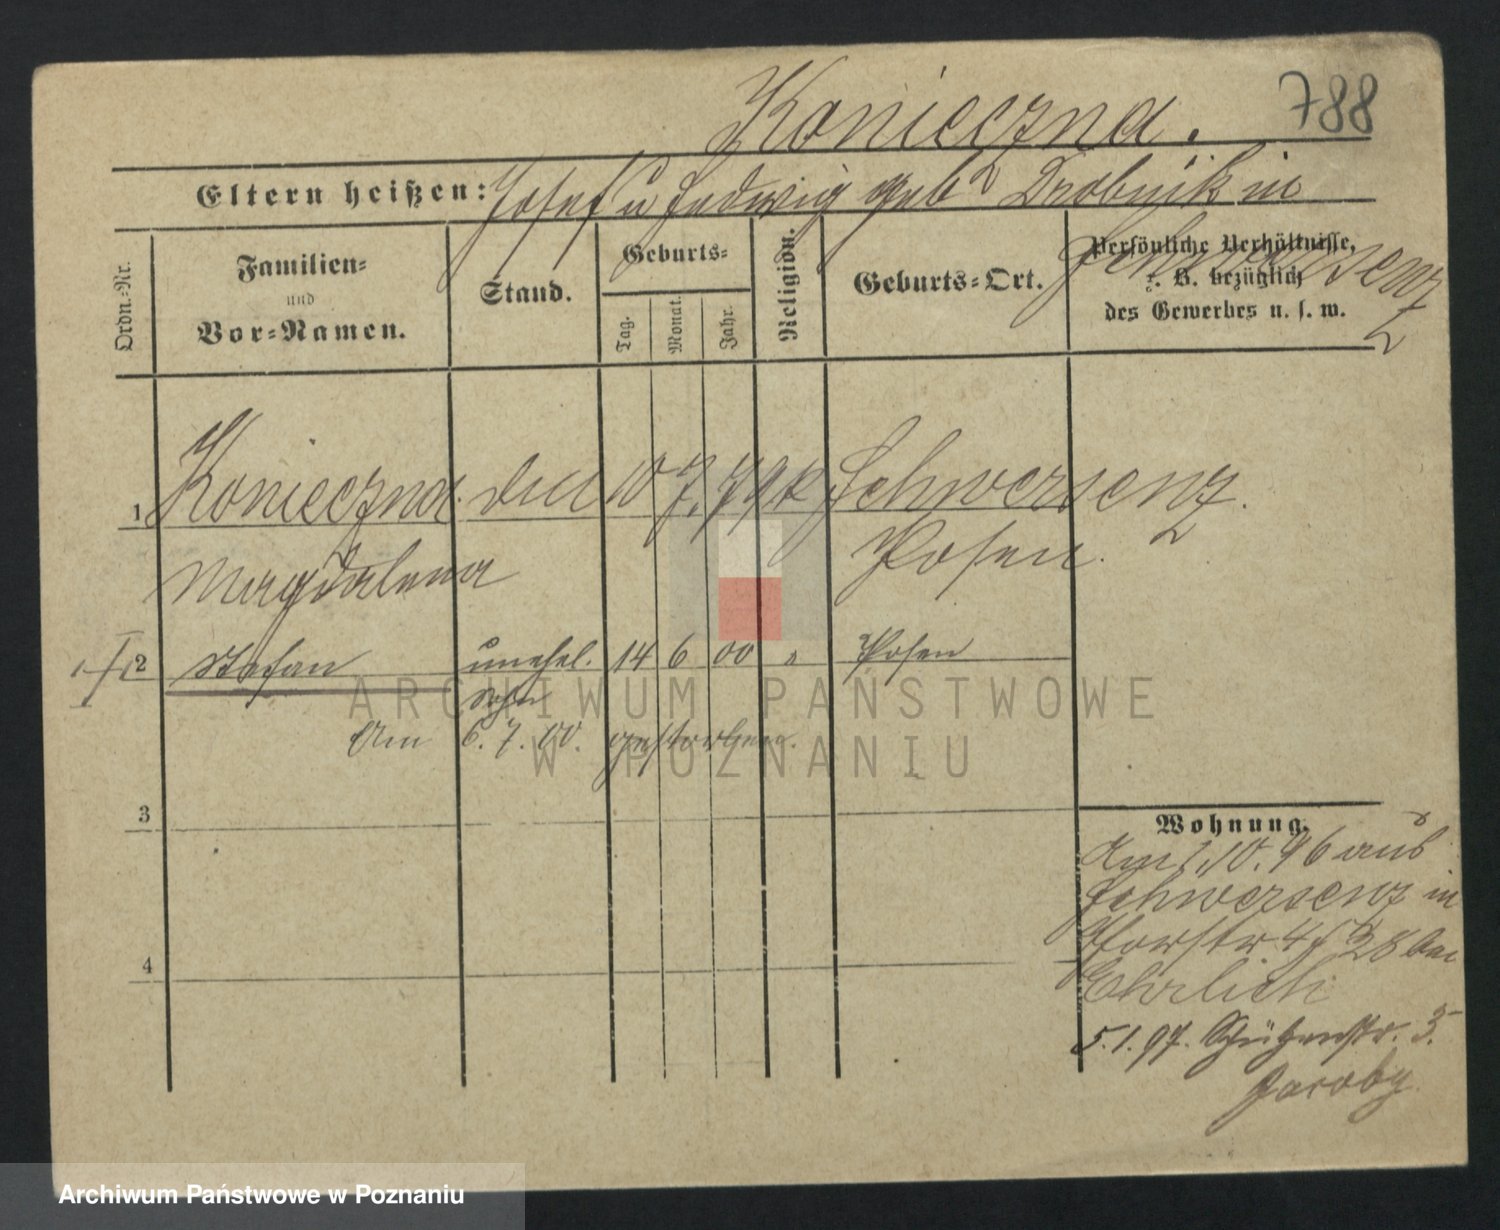 788
Konieczna.
Eltern heißen: Josef u Hedwig geb Drobnik in
Schwersenz
Ordn.-Nr.
Familien-
und
Vor-Namen.
Stand.
Geburts-
Tag.
Monat.
Jahr.
Religion.
Geburts-Ort.
Persönliche Verhältnisse,
z. B. bezüglich
des Gewerbes u. s. w.
1 Konieczna 10 7. 79 k Schwersenz.
Magdalena Posen.
2 Stefan unehel. 14 6 00 " Posen
Sohn
Am 6. 7. 00. gestorben.
3
4
Wohnung.
Am 1.10.96 aus
Schwersenz in
28 bei
Ehrlich
5.1.97. Schützenstr. 3.
Jacoby
ARCHIWUM PAŃSTWOWE
W POZNANIU
Archiwum Państwowe w Poznaniu